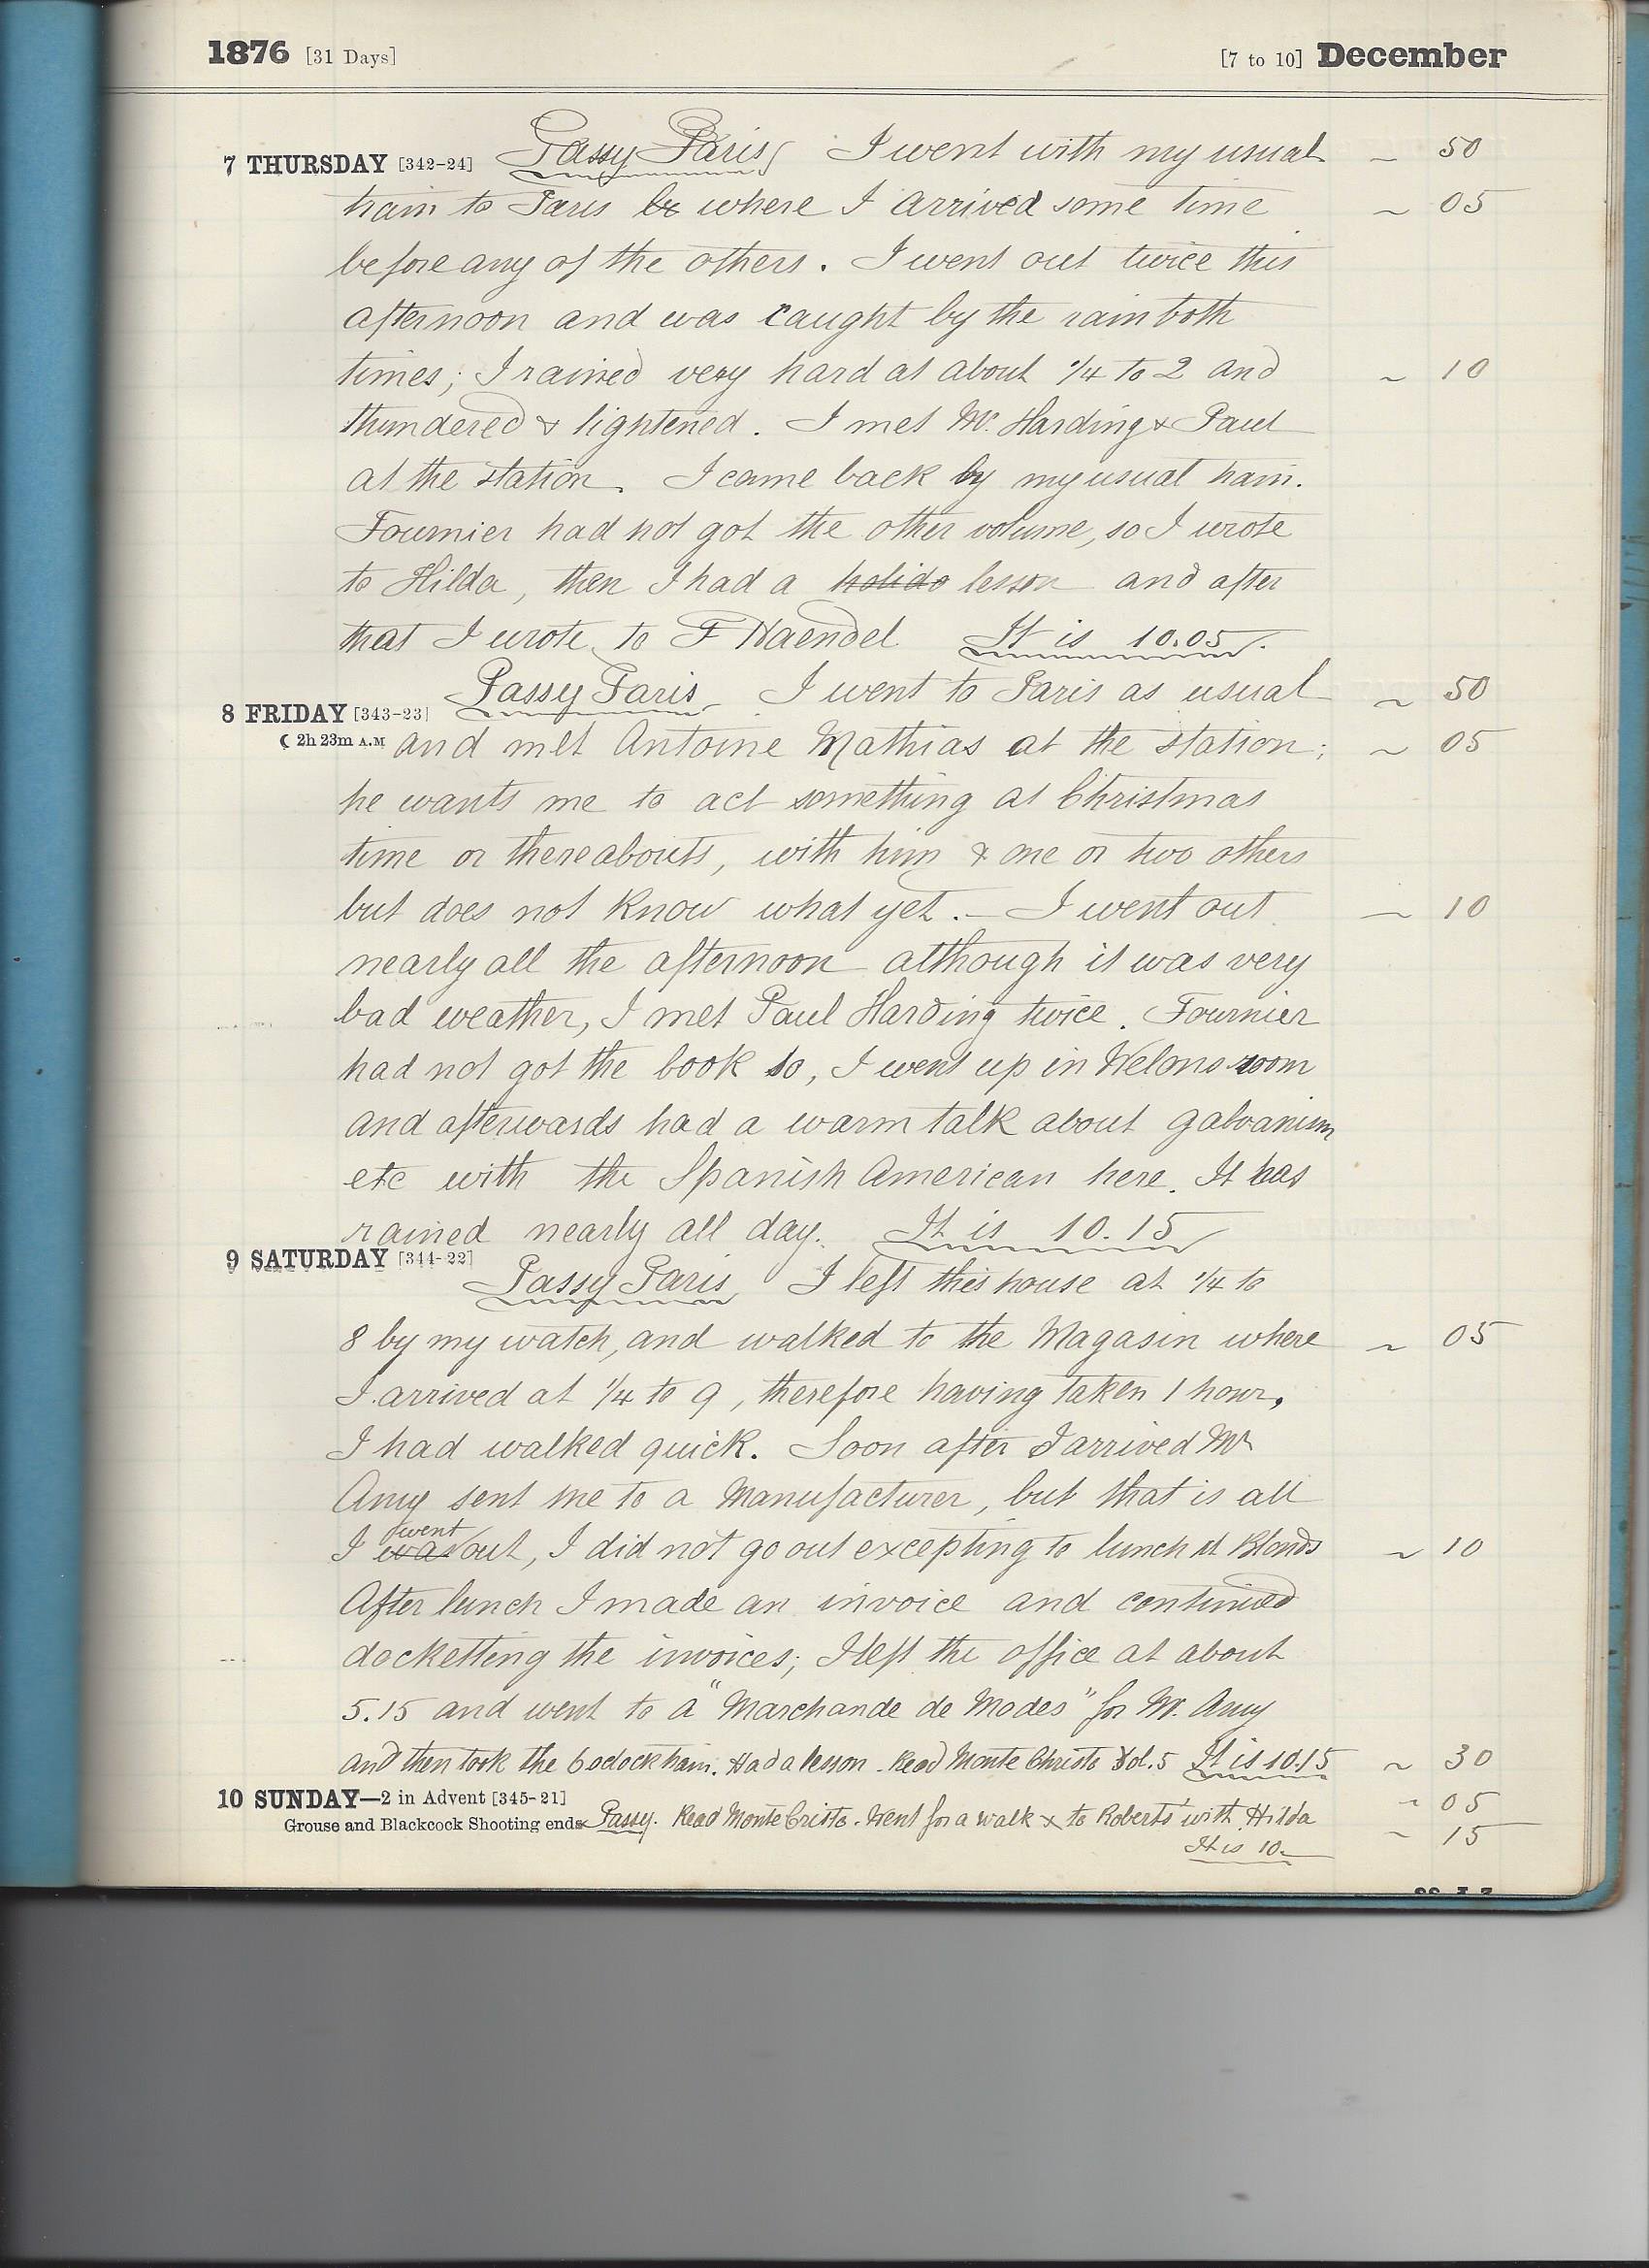 1876 [31 Days] [7 to 10] December
7 THURSDAY [342-24] Passy Paris I went with my usual ~ 50
train to Paris where I arrived some time ~ 05
before any of the others. I went out twice this
afternoon and was caught by the rain both
times; I rained very hard at about 1/4 to 2 and ~ 10
thundered & lightened. I met Mr. Harding & Paul
at the station. I came back by my usual train.
Fournier had not got the other volume, so I wrote
to Hilda, then I had a holida lesson and after
that I wrote to F Haendel It is 10.05.
Passy Paris I went to Paris as usual ~ 50
8 FRIDAY [343-23]
☾ 2h 23m A.M and met Antoine Mathias at the station; ~ 05
he wants me to act something at Christmas
time or thereabouts, with him & one or two others
but does not know what yet. — I went out — 10
nearly all the afternoon although it was very
bad weather, I met Paul Harding twice. Fournier
had not got the book so, I went up in room
and afterwards had a warm talk about galvanism
etc with the Spanish American here. It has
rained nearly all day. It is 10.15
9 SATURDAY [344-22]
Passy Paris I left this house at 1/4 to
8 by my watch, and walked to the Magasin where ~ 05
I arrived at 1/4 to 9, therefore having taken 1 hour,
I had walked quick. Soon after I arrived Mr
Amy sent me to a Manufacturer, but that is all
went
I was out, I did not go out excepting to lunch at Blonds ~ 10
After lunch I made an invoice and continued
docketting the invoices; I left the office at about
5.15 and went to a "Marchande de Modes" for Mr. Amy
and then took the 6 oclock train. Had a lesson. Read Monte Christo Vol. 5 It is 10.15 ~ 30
10 SUNDAY—2 in Advent [345-21] ~ 05
Grouse and Blackcock Shooting ends Passy. Read Monte Cristo. Went for a walk & to Roberts' with Hilda
It is 10. ~ 15